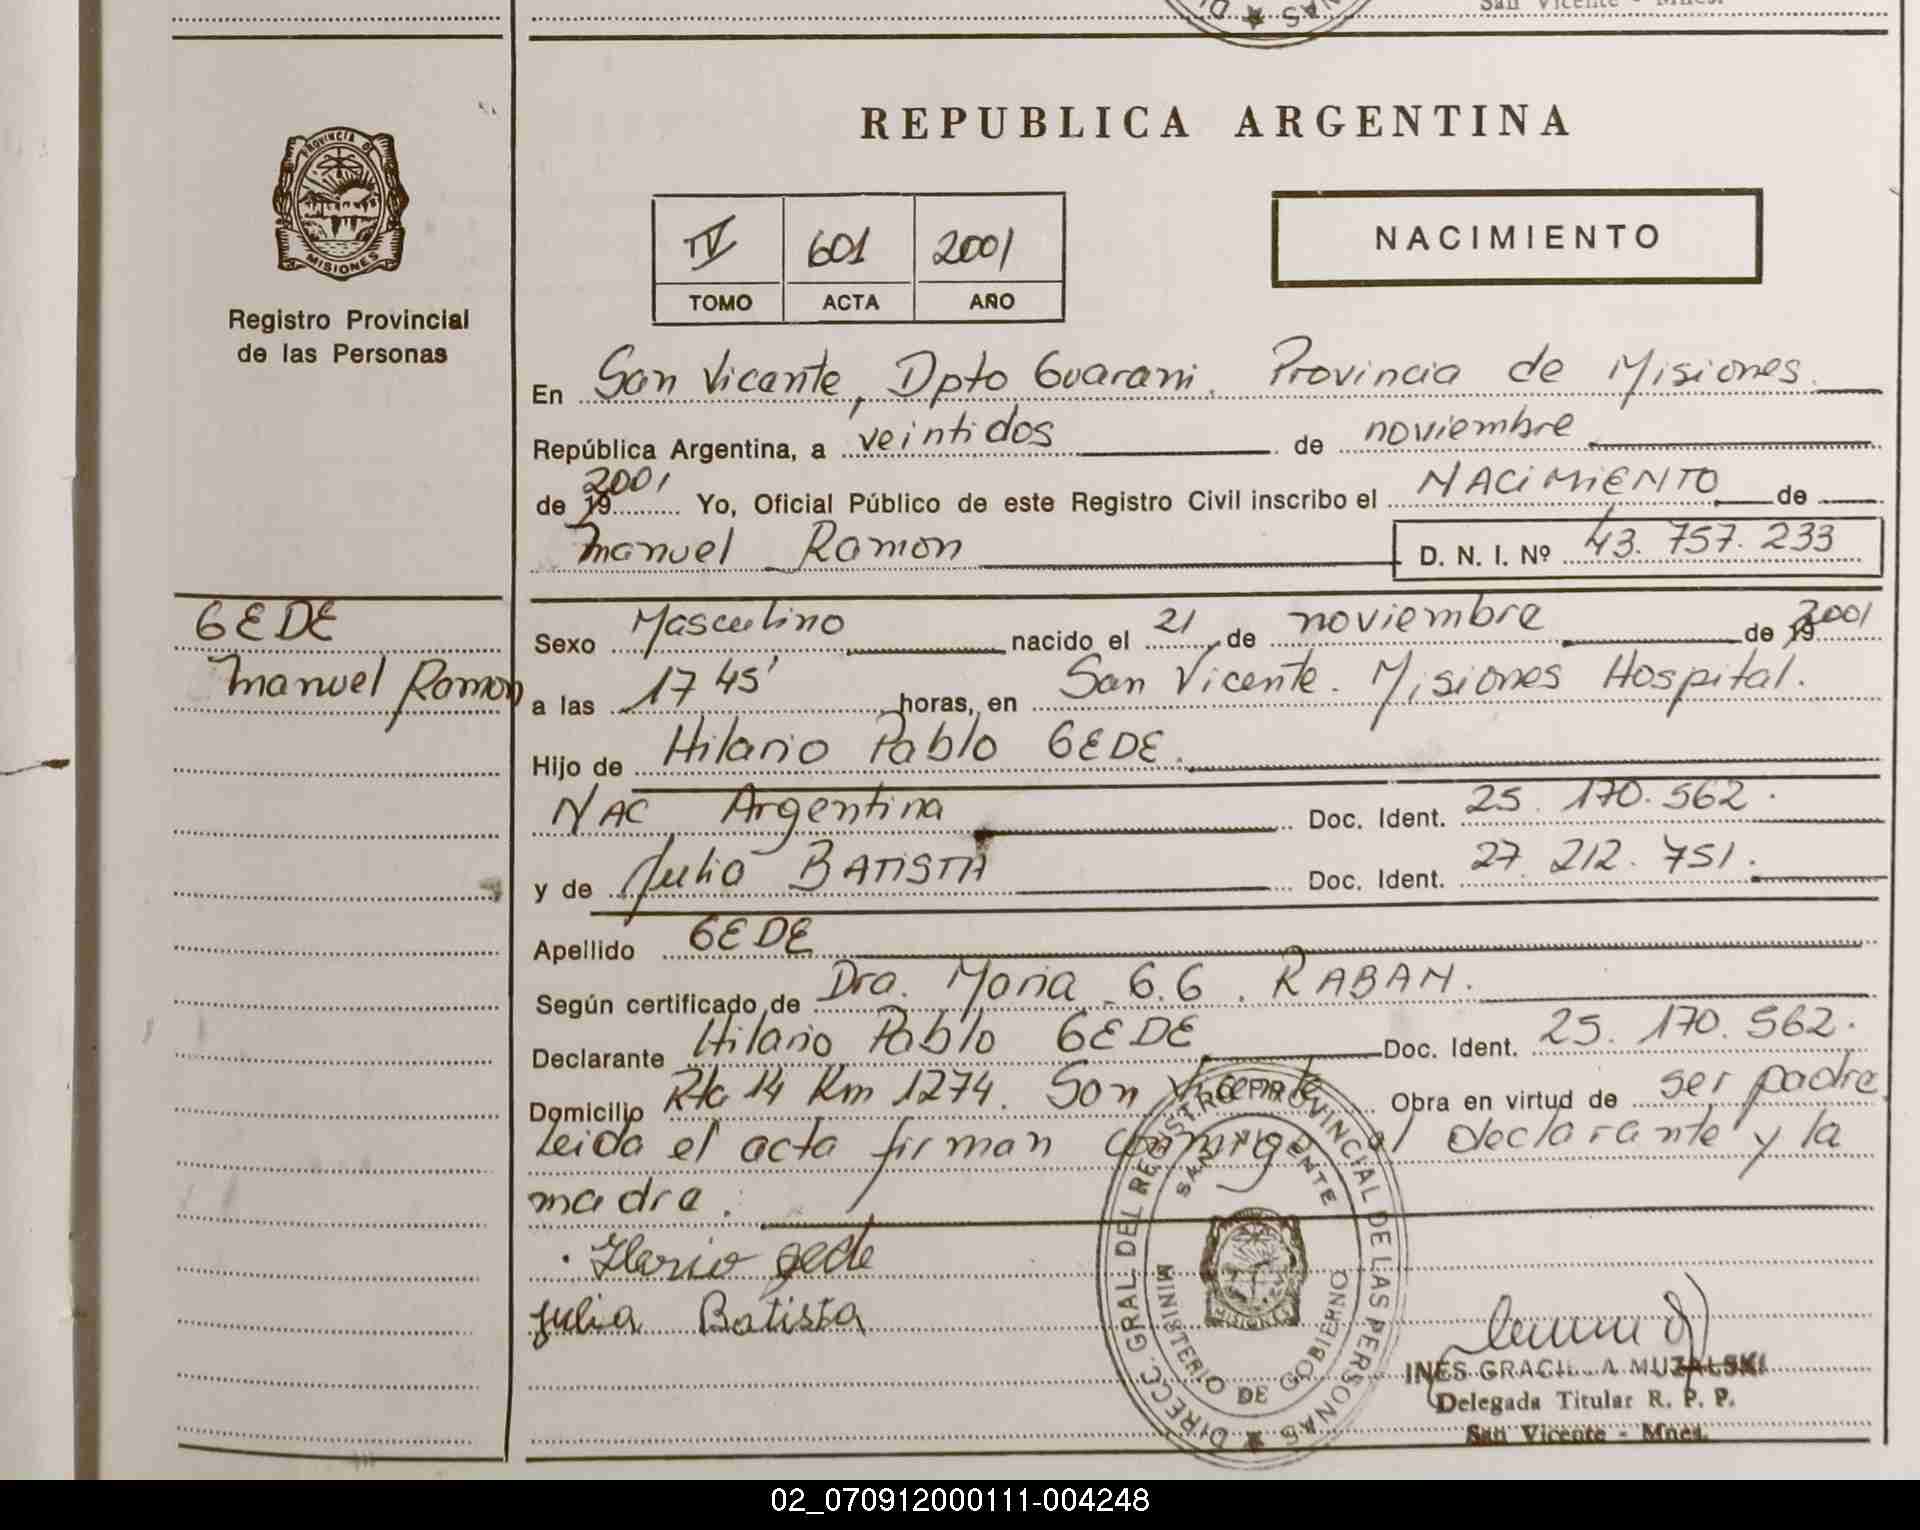 San Vicente - Mnes.
REPUBLICA ARGENTINA
PROVINCIA DE
MISIONES
Registro Provincial
de las Personas
IV 601 2001
TOMO ACTA AÑO
NACIMIENTO
En San Vicente, Dpto Guarani. Provincia de Misiones.
República Argentina, a veintidos de noviembre
de 19 2001 Yo, Oficial Público de este Registro Civil inscribo el NACIMIENTO de
Manuel Ramon D. N. I. Nº 43.757.233
GEDE
Manuel Ramon
Sexo Masculino nacido el 21 de noviembre de 19 2001
a las 17 45' horas, en San Vicente. Misiones Hospital.
Hijo de Hilario Pablo GEDE.
NAC Argentina Doc. Ident. 25.170.562.
y de Julia BATISTA Doc. Ident. 27.212.751.
Apellido GEDE
Según certificado de Dra. Maria G.G. RABAN.
Declarante Hilario Pablo GEDE Doc. Ident. 25.170.562.
Domicilio Rta 14 Km 1274. San Vicente Obra en virtud de ser padre.
Leida el acta firman conmigo el declarante y la
madre.
Ilario gede
Julia Batista
DIRECC. GRAL. DEL REGISTRO PROVINCIAL DE LAS PERSONAS
SAN VICENTE
MINISTERIO DE GOBIERNO
MISIONES
INES GRACIELA MUZALSKI
Delegada Titular R. P. P.
San Vicente - Mnes.
02_070912000111-004248